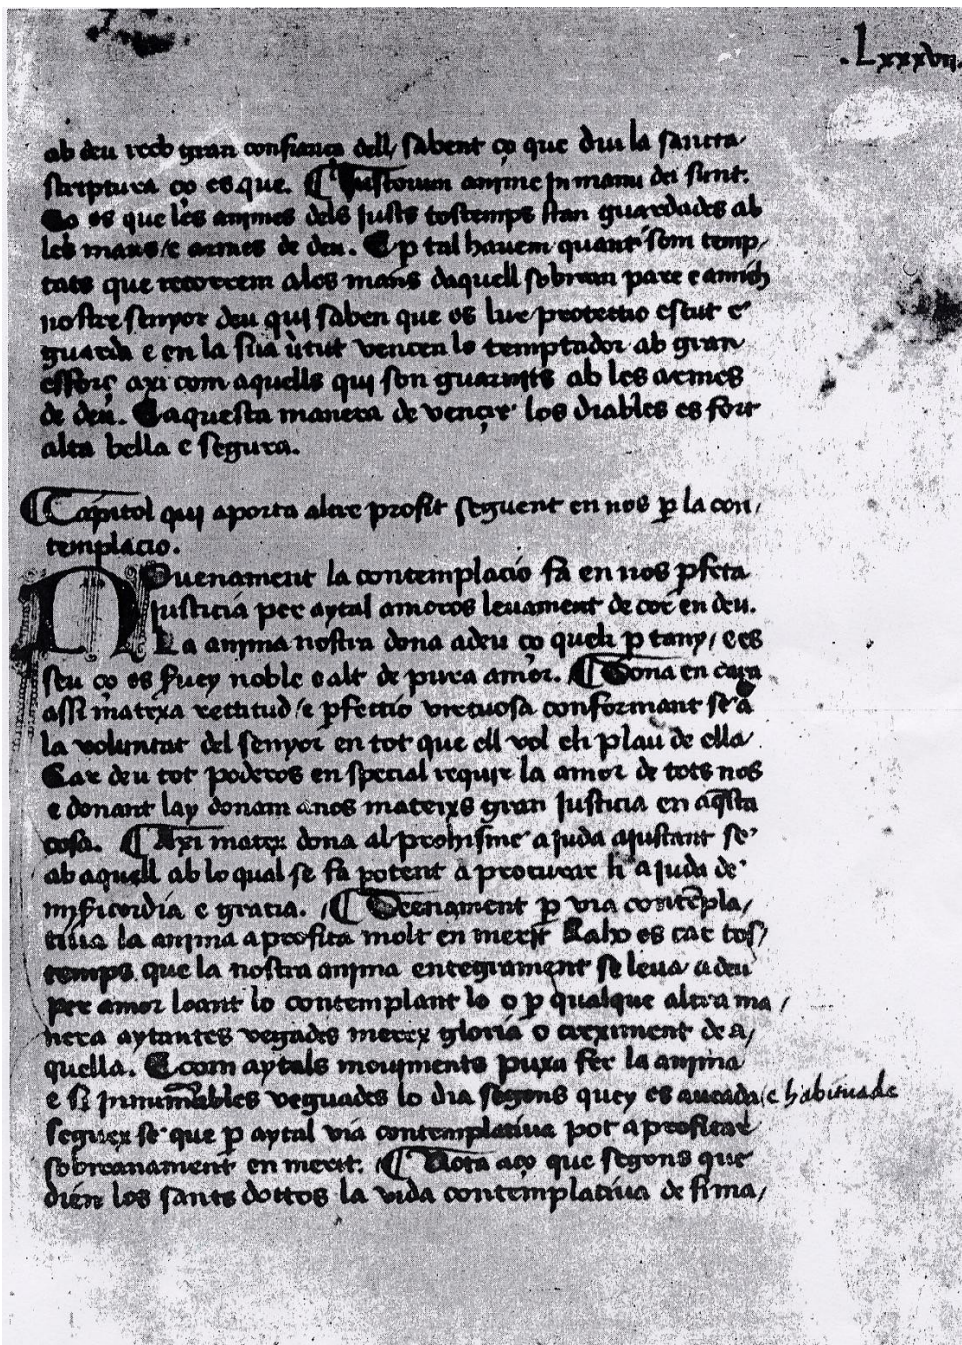 .Lxxxvii.
ab deu reeb gran confiança dell / sabent ço que diu la sancta
scriptura ço es que. ¶ Iustorum anime in manu dei sunt.
Ço es que les animes dels justs tostemps stan guardades ab
les mans / e armes de deu. E p tal hauem quant som temp/
tats que recorrem a les mans daquell sobiran pare e amich
nostre senyor deu qui saben que es lur protectio escut e
guarda e en la sua v̓tut vencen lo temptador ab gran
esforç axi com aquells qui son guarnits ab les armes
de deu. E aquesta manera de vençre los diables es fort
alta bella e segura.
¶ Capitol qui aporta altre profit seguent en nos p̲ la con/
templacio.
Nouenament la contemplacio fa en nos p̲feta
justicia per aytal amoros leuament de cor en deu.
La anjma nostra dona a deu ço queli p̲tany / e es
seu ço es seruey noble e alt de pura amor. ¶ Dona en cara
assi mateixa rectitud / e p̲fectio virtuosa conformant se a
la voluntat del senyor en tot que ell vol eli plau de ella
Car deu tot poderos en special requir la amor de tots nos
e donant lay donam a nos mateixs gran justicia en aq̃sta
cosa. ¶ Axi mateix dona al prohisme ajuda ajustant se
ab aquell ab lo qual se fa potent a procurar li ajuda de
misericordia e gracia. ¶ Deenament p̲ via contẽpla/
tiua la anjma aprofita molt en merit Raho es car tos/
temps que la nostra anjma entegrament se leua a deu
per amor loant lo contemplant lo o p̲ qualque altra ma/
nera aytantes vegades mereix gloria o creximent de a/
quella. E com aytals mouiments puxa fer la anjma
e si innumẽbles veguades lo dia segons quey es aueada / e habituade
segueix se que p̲ aytal via contemplatiua pot aprofitar
sobiranament en merit. ¶ Nota aço que segons que
dien los sants dottos la vida contemplatiua de sima/